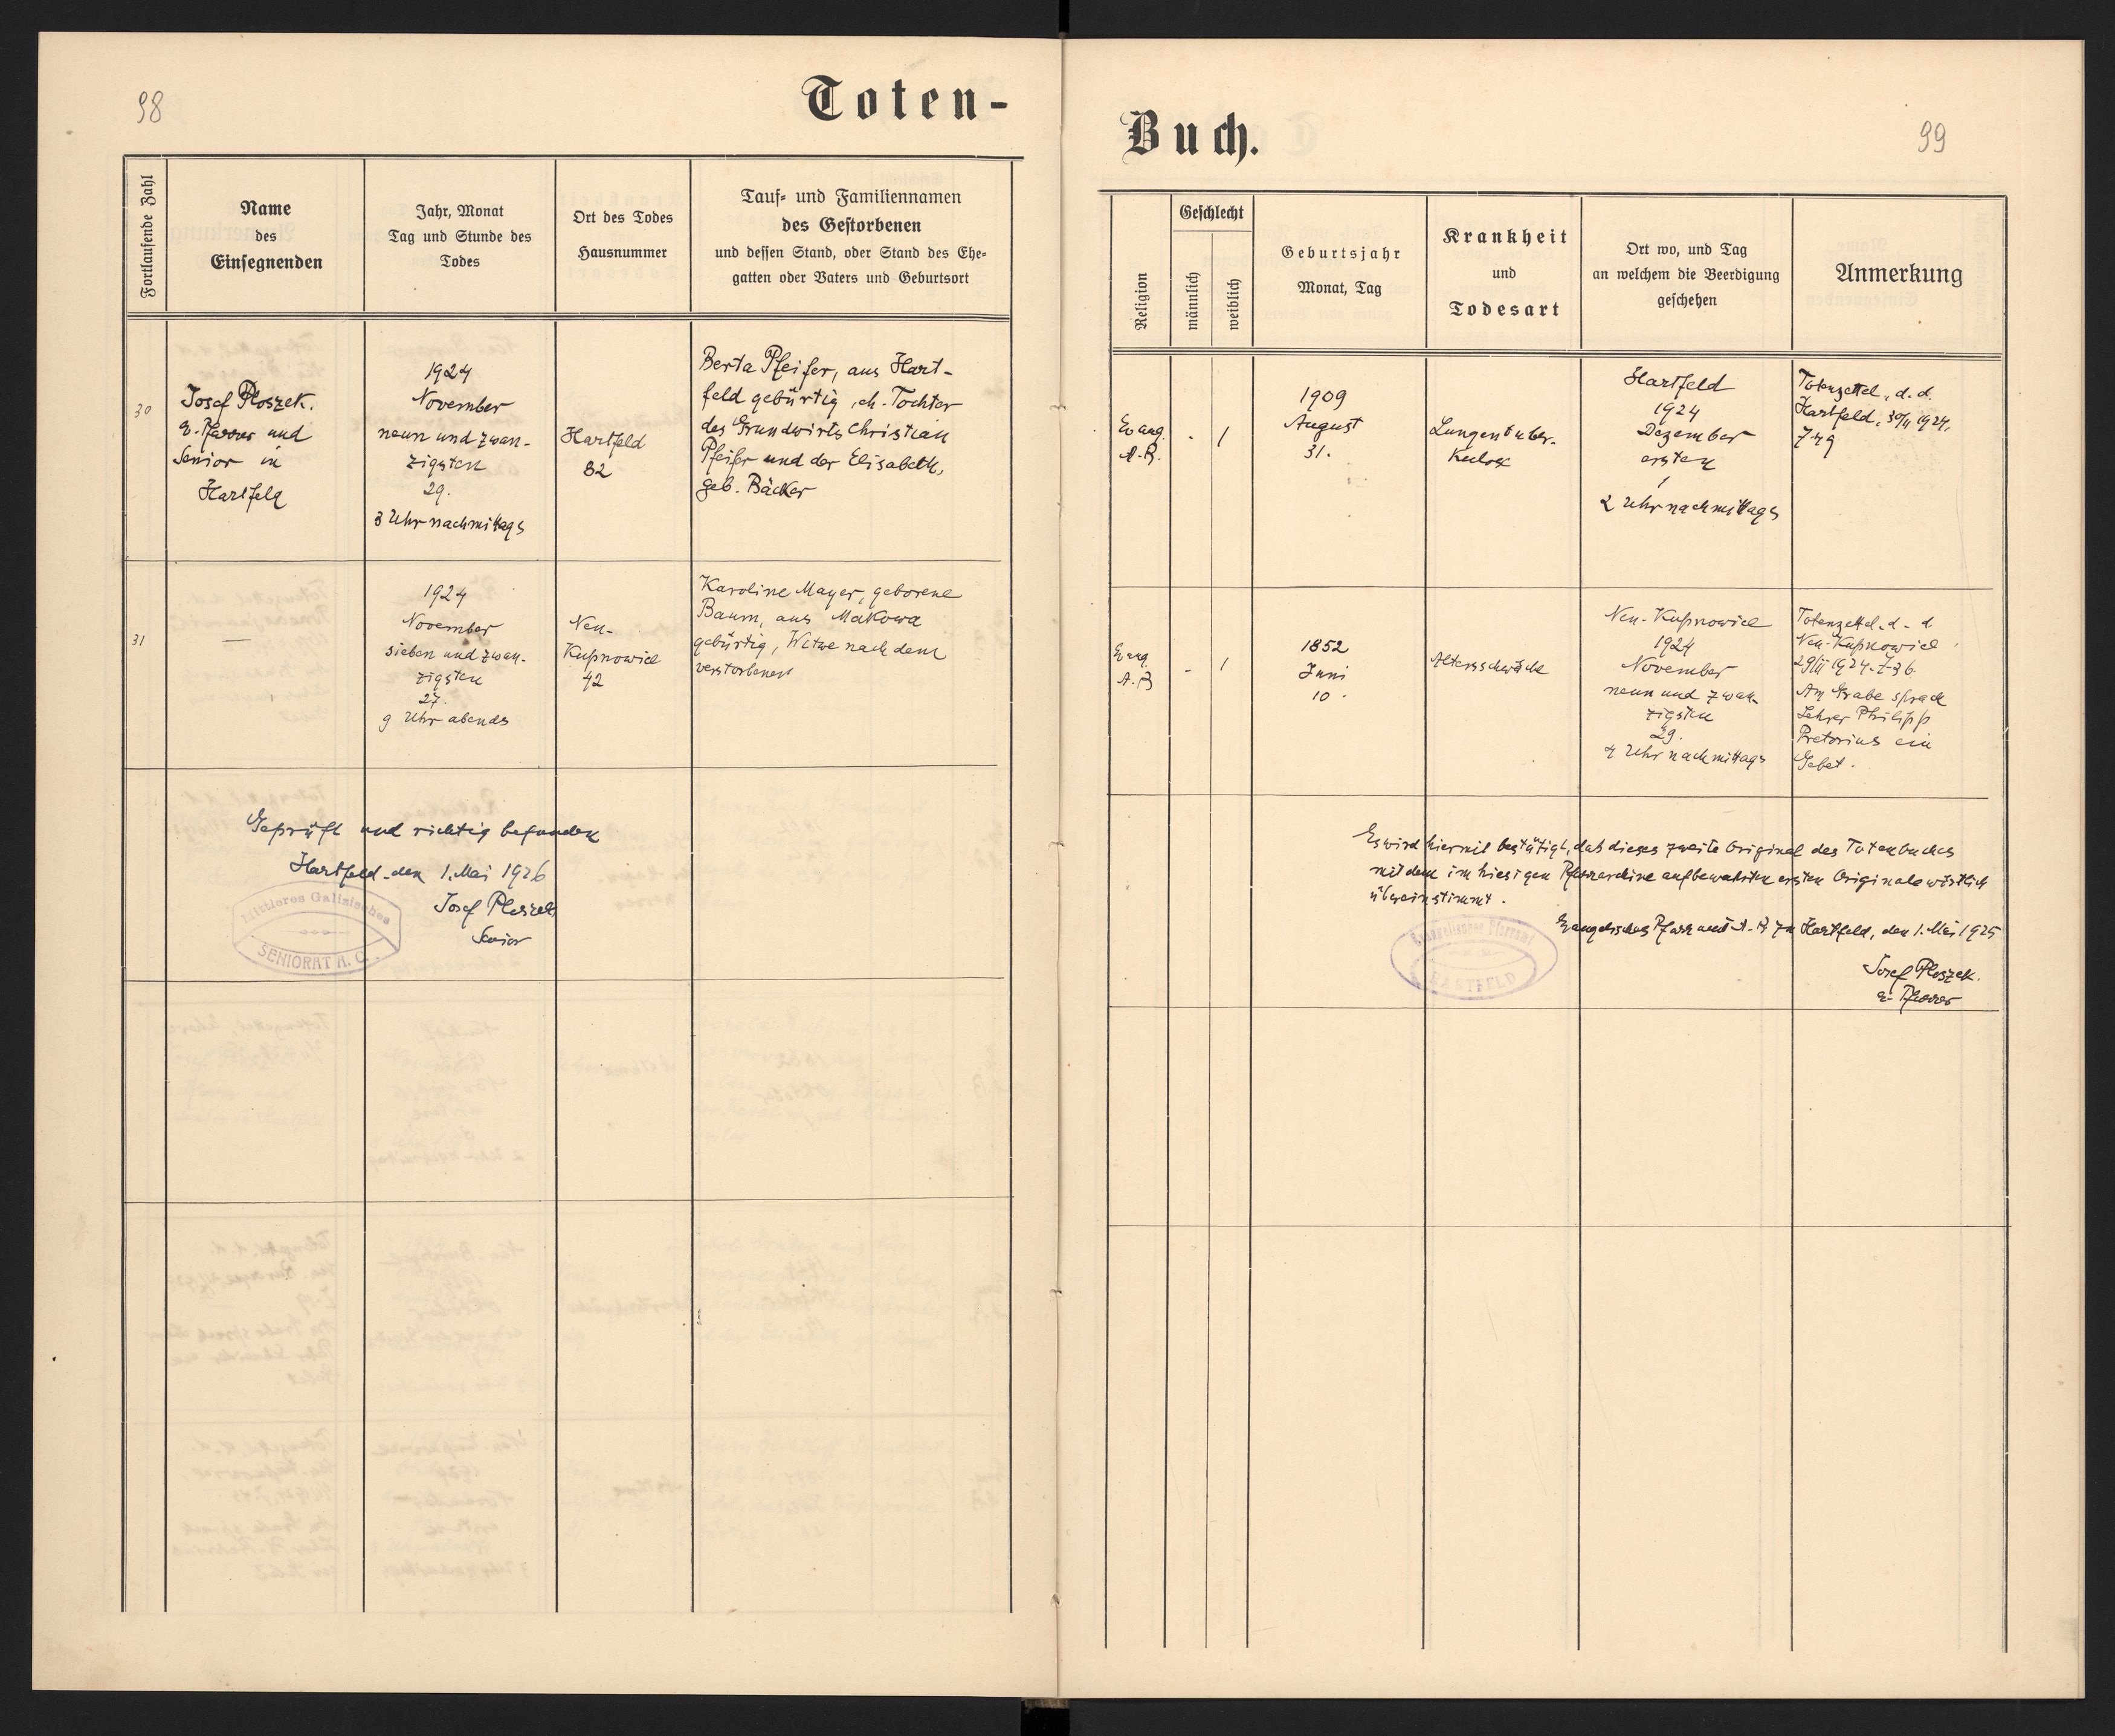 98
Toten-
Fortlaufende Zahl
Name
des
Einsegnenden
Jahr, Monat
Tag und Stunde des
Todes
Ort des Todes
Hausnummer
Tauf- und Familiennamen
des Gestorbenen
und dessen Stand, oder Stand des Ehe-
gatten oder Vaters und Geburtsort
30
Josef Ploszek.
e. Pfarrer und
Senior in
Hartfeld
1924
November
neun und zwan-
zigsten
29.
3 Uhr nachmittags
Hartfeld
82
Berta Pfeifer, aus Hart-
feld gebürtig, eh. Tochter
des Grundwirts Christian
Pfeifer und der Elisabeth,
geb. Bäcker
31
—
1924
November
sieben und zwan-
zigsten
27.
9 Uhr abends
Neu-
Kupnowice
42
Karoline Mayer, geborene
Baum, aus Makowa
gebürtig, Witwe nach dem
verstorbenen
Geprüft und richtig befunden
Hartfeld, den 1. Mai 1926
Josef Ploszek
Senior
Mittleres Galizisches
SENIORAT A. C.
Buch.
99
Religion
Geschlecht
männlich
weiblich
Geburtsjahr
Monat, Tag
Krankheit
und
Todesart
Ort wo, und Tag
an welchem die Beerdigung
geschehen
Anmerkung
Evang.
A. B.
-
1
1909
August
31.
Lungentuber-
kulose
Hartfeld
1924
Dezember
ersten
1
2 Uhr nachmittags
Totenzettel, d. d.
Hartfeld, 30/11 1924,
Z 49
Evang.
A. B
-
1
1852
Juni
10.
Altersschwäche
Neu-Kupnowice
1924
November
neun und zwan-
zigsten
29.
4 Uhr nachmittags
Totenzettel. d. d.
Neu-Kupnowice
29/11 1924. Z 36.
Am Grabe sprach
Lehrer Philipp
Pretorius ein
Gebet.
Es wird hiermit bestätigt, daß dieses zweite Original des Totenbuches
mit dem im hiesigen Pfarrarchive aufbewahrten ersten Originale wörtlich
übereinstimmt.
Evangelisches Pfarramt A. B. zu Hartfeld, den 1. Mai 1925
Josef Ploszek.
e. Pfarrer
Evangelisches Pfarramt
HARTFELD